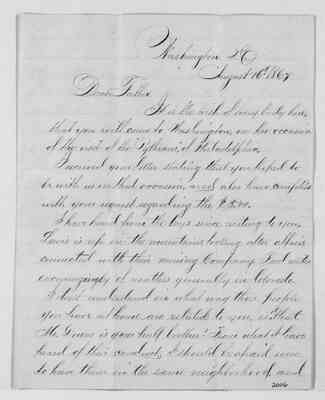 Washington D.C.
August 16th 1867
Dear Father
It is the wish of every body here
that you will come to Washington, on the occasion
of the visit of the "Pythians" of Philadelphia.
I received your letter stating that you hoped to
be with us on that occasion, and also have complied
with your request regarding the
I have heard from the boys since writing to you.
Lewis is up in the mountains looking after affairs
connected with their mining Company. Fred writes
encouragingly of matters generally in Colorado.
I don't understand in what way those people
you have at home are related to you, is that
Mr. your half brother? From what I have
heard of their conduct, I should be afraid even
to have them in the same neighborhood, and